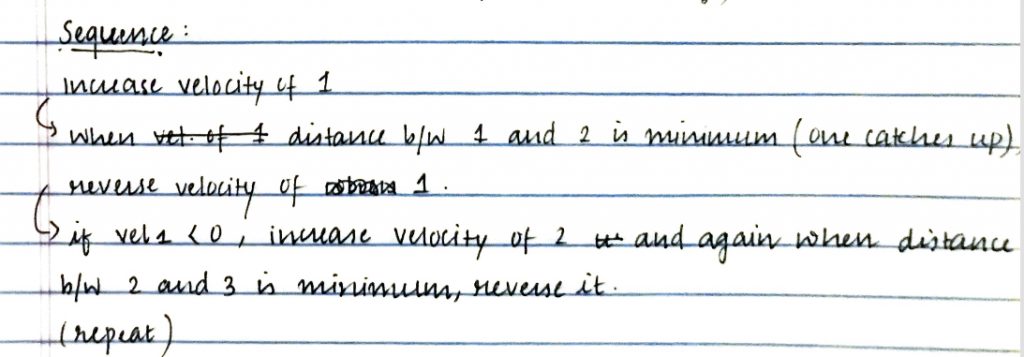 Sequence :
increase velocity of 1
when vel. of 1 distance b/w 1 and 2 is minimum (one catches up)
reverse velocity of 1.
if vel 1 < 0, increase velocity of 2 and again when distance
b/w 2 and 3 is minimum, reverse it.
(repeat)